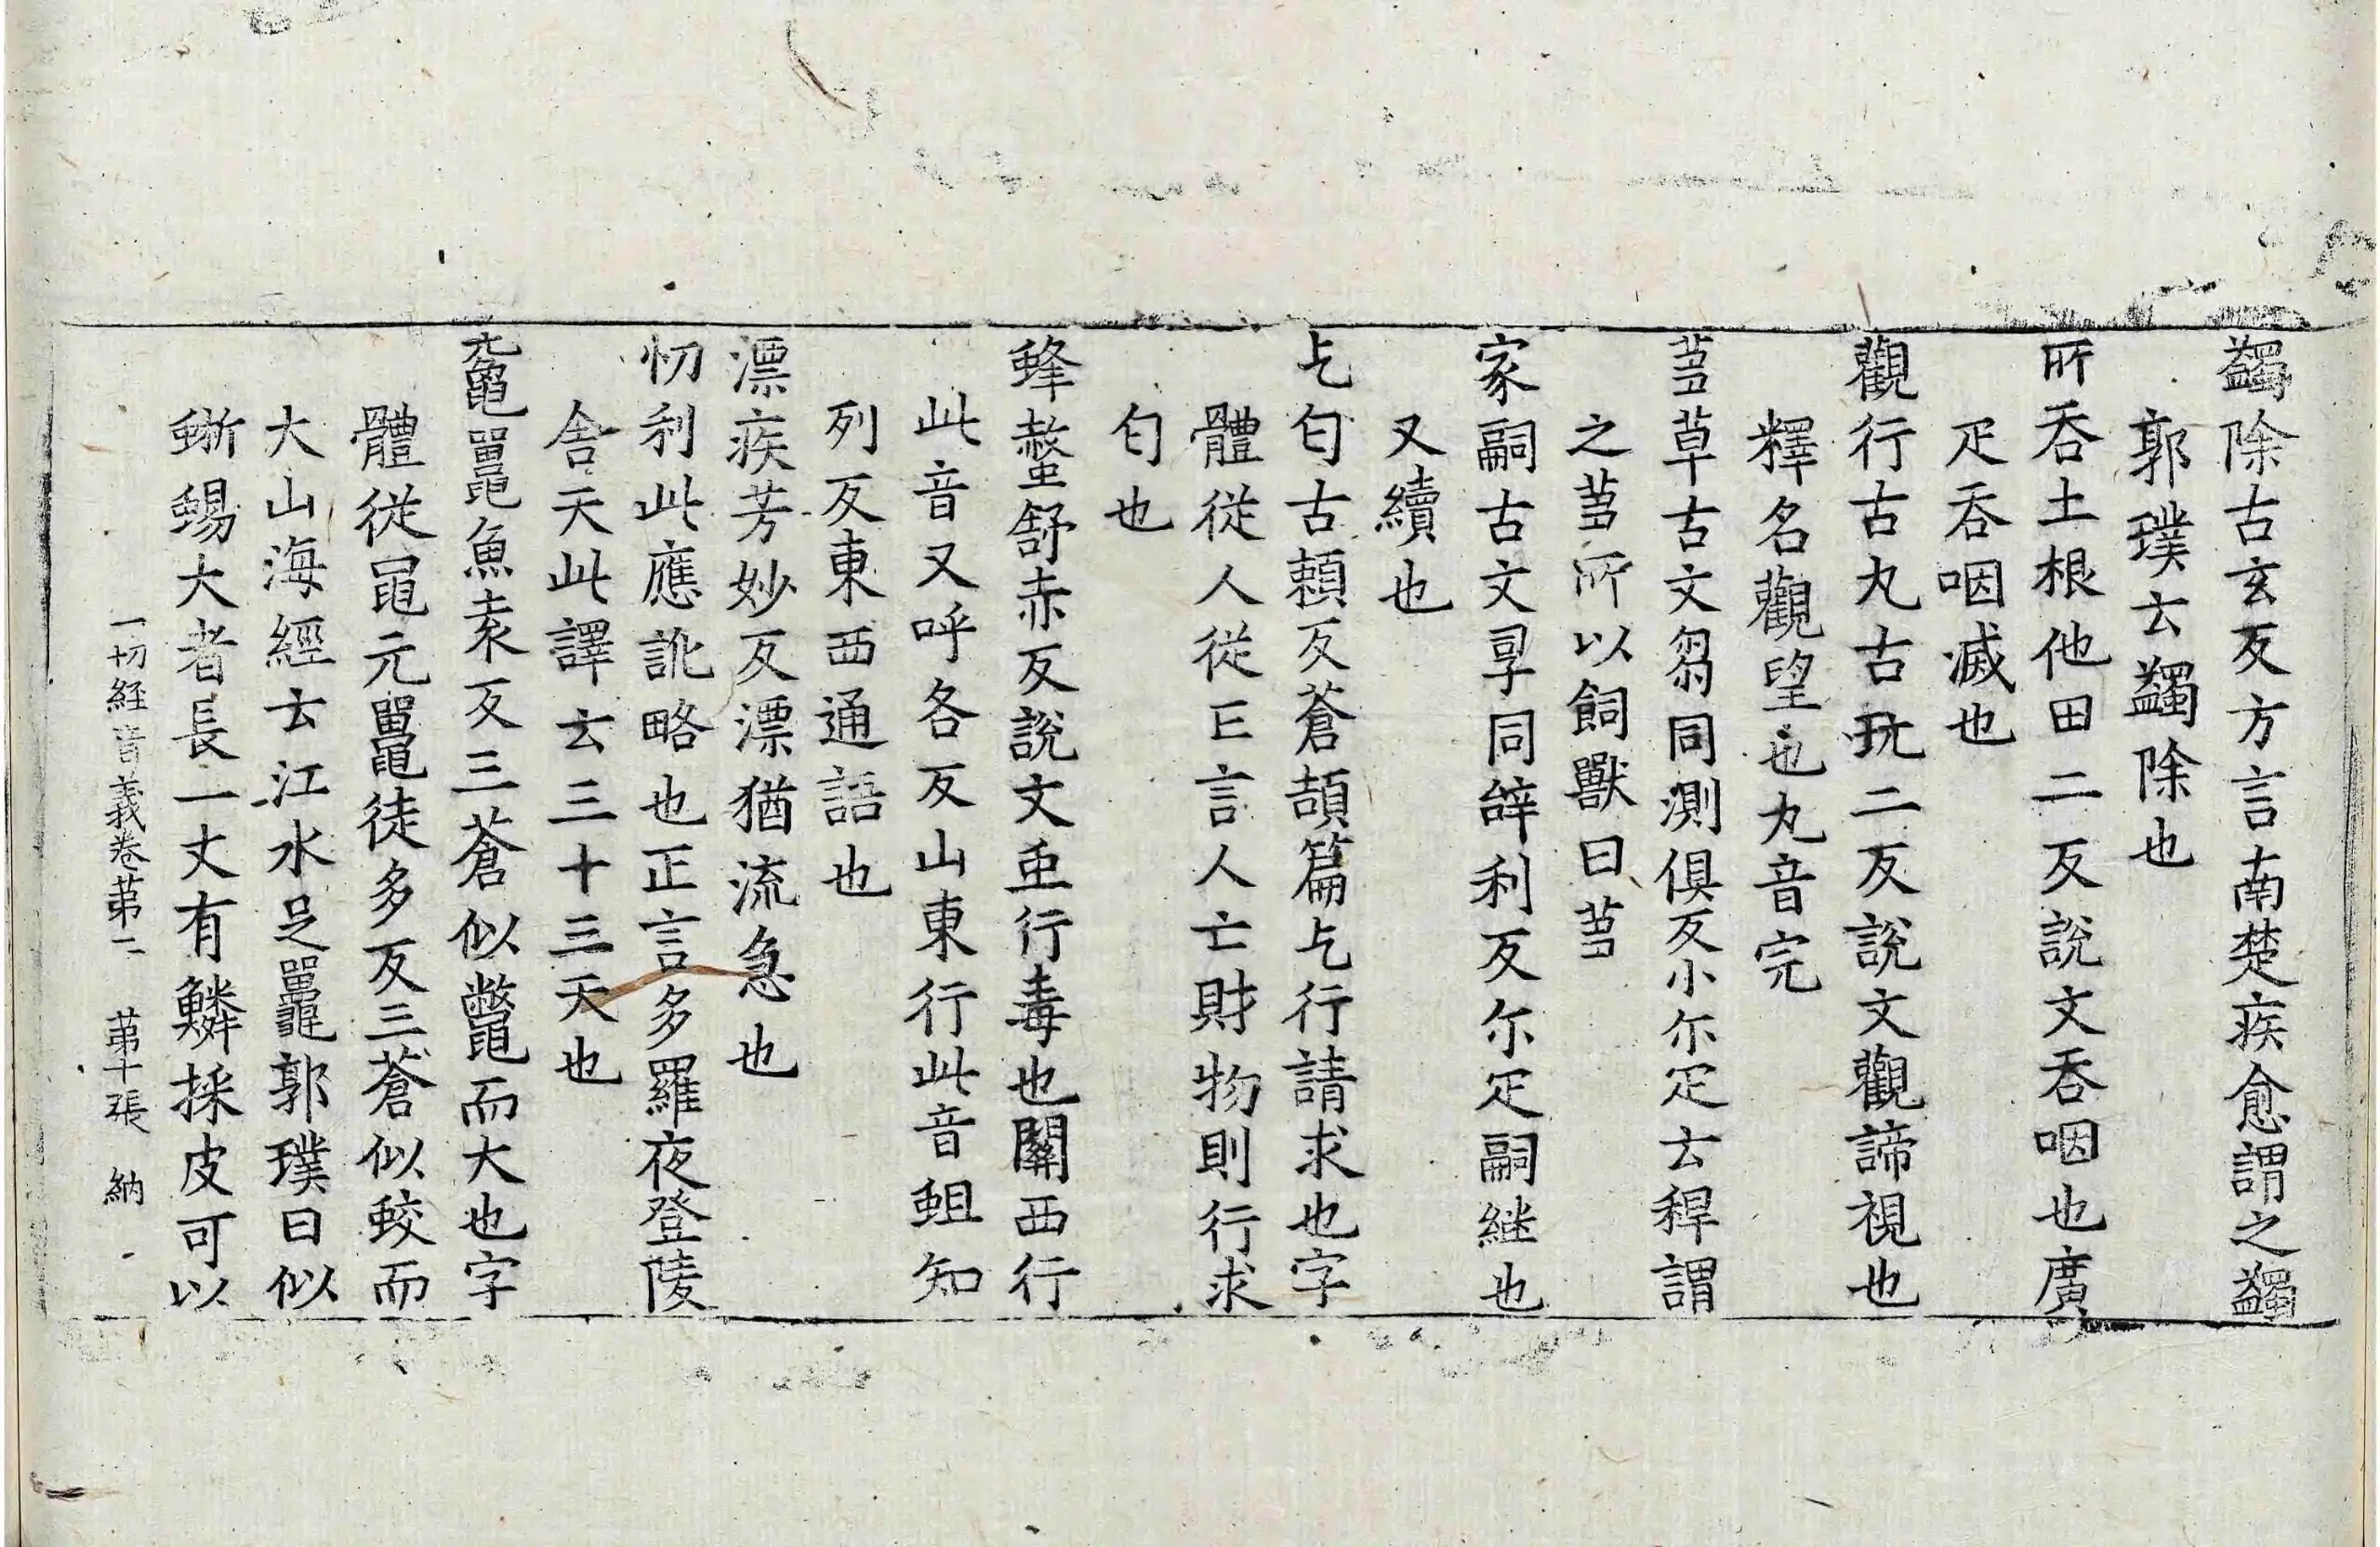 蠲除古玄反方言南楚疾愈謂之蠲
郭璞云蠲除也
所吞土根他田二反說文吞咽也廣
疋吞咽滅也
觀行古丸古玩二反說文觀諦視也
釋名觀望也丸音完
蒭草古文芻同測俱反小尒疋云稈謂
之蒭所以飼獸曰蒭
家嗣古文孠同辝利反尒疋嗣継也
又續也
乞匄古頼反蒼頡篇乞行請求也字
體從人從亾言人亡財物則行求
匄也
蜂螫舒赤反說文虫行毒也關西行
此音又呼各反山東行此音蛆知
列反東西通語也
漂疾芳妙反漂猶流急也
忉利此應訛略也正言多羅夜登陵
舍天此譯云三十三天也
黿鼉魚袁反三蒼似鼈而大也字
體從黽元鼉徒多反三蒼似蛟而
大山海經云江水足鼉郭璞曰似
蜥蜴大者長一丈有鱗採皮可以
一切経音義卷苐二 苐十張 納